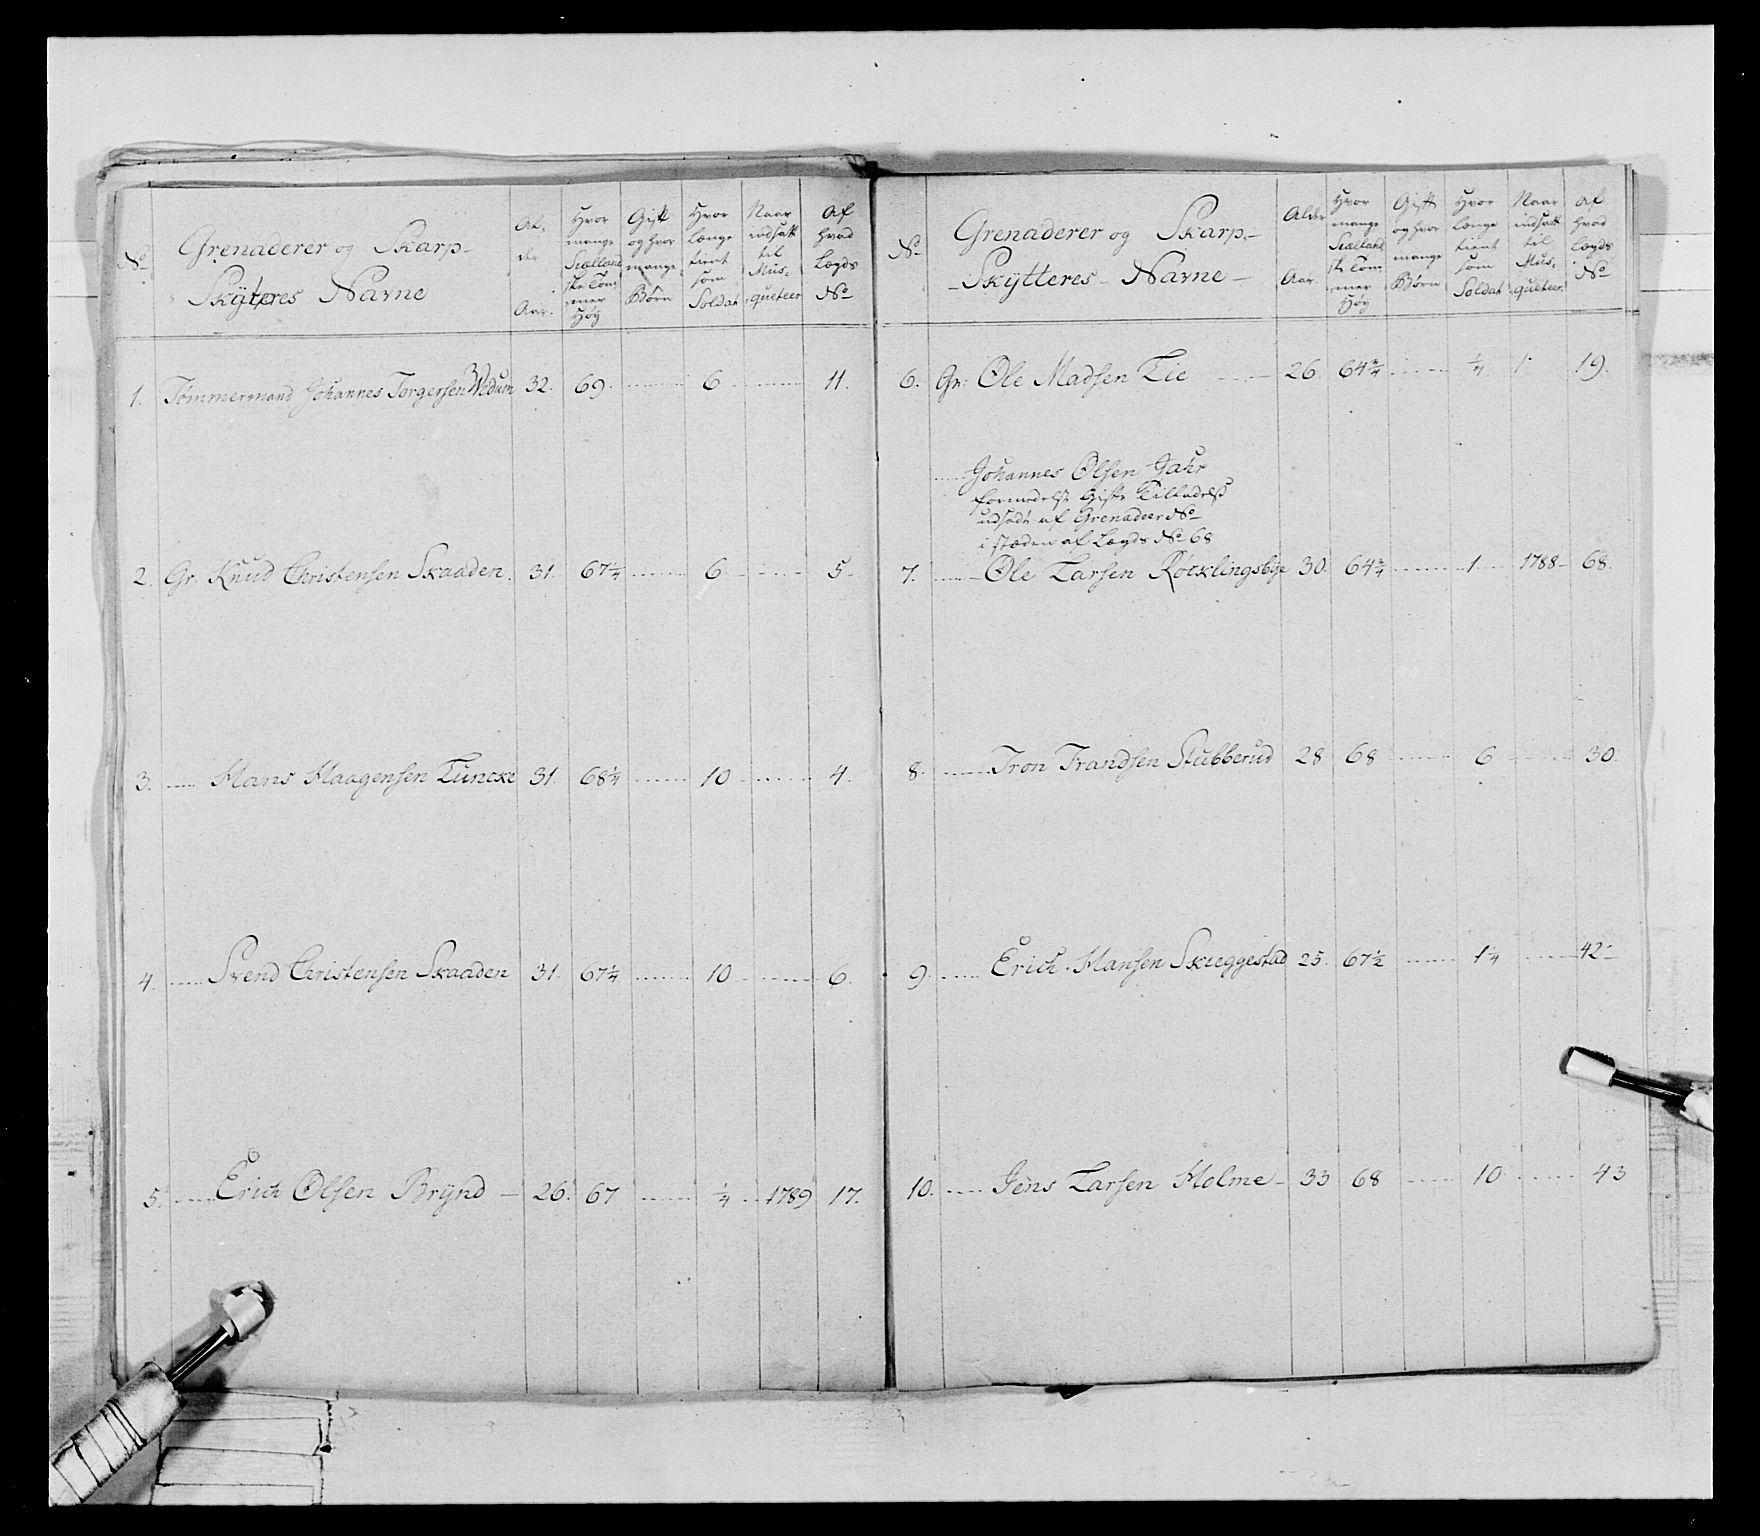 No
Grenaderer og Skarp-
Skÿtteres Navne
Al-
der
Aar.
Hvor
mange
Siælland
ske Tom-
mer
Høÿ
Gift
og hvor
mange
Børn
Hvor
længe
tient
som
Soldat
Naar
indsatt
til
Mus-
queteer
Af
hvad
Lægds
No
1. Tømmermand Johannes Torgersen Wedum 32. 69. 6 11.
2. Gr. Knud Christensen Skaaden. 31. 67¼ 6 5
3. Hans Haagensen Luncke 31. 68¼ 10 4.
4. Svend Christensen Skaaden 31. 67¼ 10 6.
5. Erich Olsen Brÿnd 26. 67 ¼ 1789 17.
No
Grenaderer og Skarp-
Skÿtteres Navne
Alder
Aar.
Hvor
mange
Siælland
ske Tom-
mer
Høÿ
Gift
og hvor
mange
Børn
Hvor
længe
tient
som
Soldat
Naar
indsatt
til
Mus-
queteer
Af
hvad
Lægds
No
6. Gr: Ole Madsen Lie 26 64¾ ¼ 1 19.
Johannes Olsen Jahr
formedelst Gifte Tilladelse
udsadt af Grenadeer No
i stæden af Lægds No 68
7. Ole Larsen Röcklingsbÿe 30. 64¾ 1 1788 68.
8. Tron Frandsen Stubberud 28 68 6 30.
9. Erich Hansen Skieggestad 25. 67½ 1¼ 42
10. Jens Larsen Holme 33 68 10 43